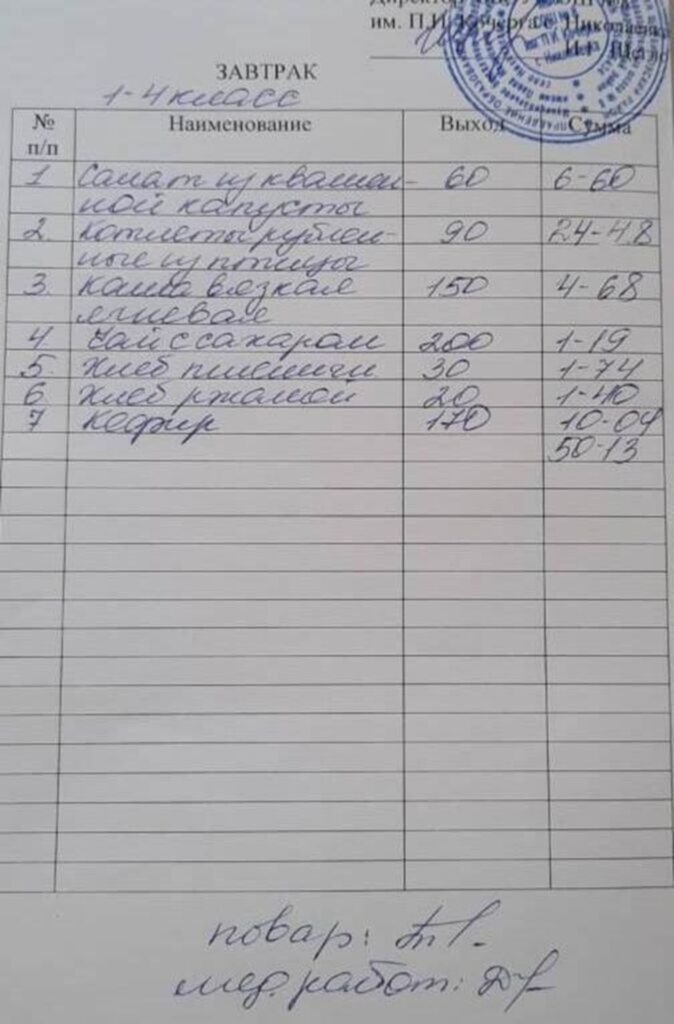 им. П.И. Кучерга с. Николаевка
ЗАВТРАК
1-4 класс
№ п/п Наименование Выход Сумма
1 Салат из квашен- 60 6-60
ной капусты
2. Котлеты рублен- 90 24-48
ные из птицы
3. Каша вязкая 150 4-68
ячневая
4. Чай с сахаром 200 1-19
5. Хлеб пшеничн 30 1-74
6 Хлеб ржаной 20 1-40
7 Кефир 170 10-04
50-13
повар:
мед. работ: